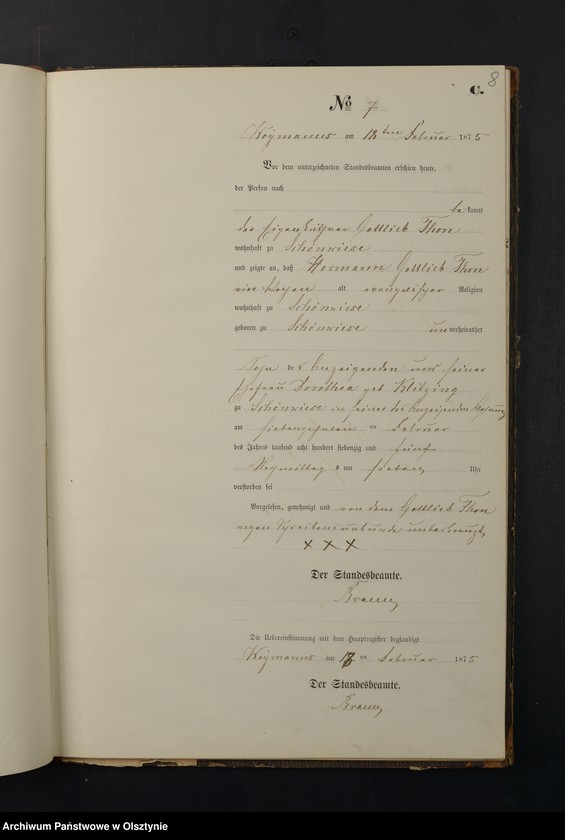 8
C.
No 7
Koÿmanns am 18ten Februar 1875
Vor dem unterzeichneten Standesbeamten erschien heute,
der Person nach
bekannt
der Eigenkäthner Gottlieb Thon
wohnhaft zu Schönwiese
und zeigte an, daß Hermann Gottlieb Thon
vier Wochen alt evangelischer Religion
wohnhaft zu Schönwiese
geboren zu Schönwiese unverheirathet
Sohn des Anzeigenden und seiner
Ehefrau Dorothea geb Klitzing
zu Schönwiese in seiner des Anzeigenden Wohnung
am siebenzehnten Februar
des Jahrs tausend acht hundert siebenzig und fünf
Nachmittags um sieben Uhr
verstorben sei
Vorgelesen, genehmigt und von dem Gottlieb Thon
wegen Schreibensunkunde unterkreuzt
x x x
Der Standesbeamte.
Die Uebereinstimmung mit dem Hauptregister beglaubigt
Koÿmanns am 18ten Februar 1875
Der Standesbeamte.
Archiwum Państwowe w Olsztynie